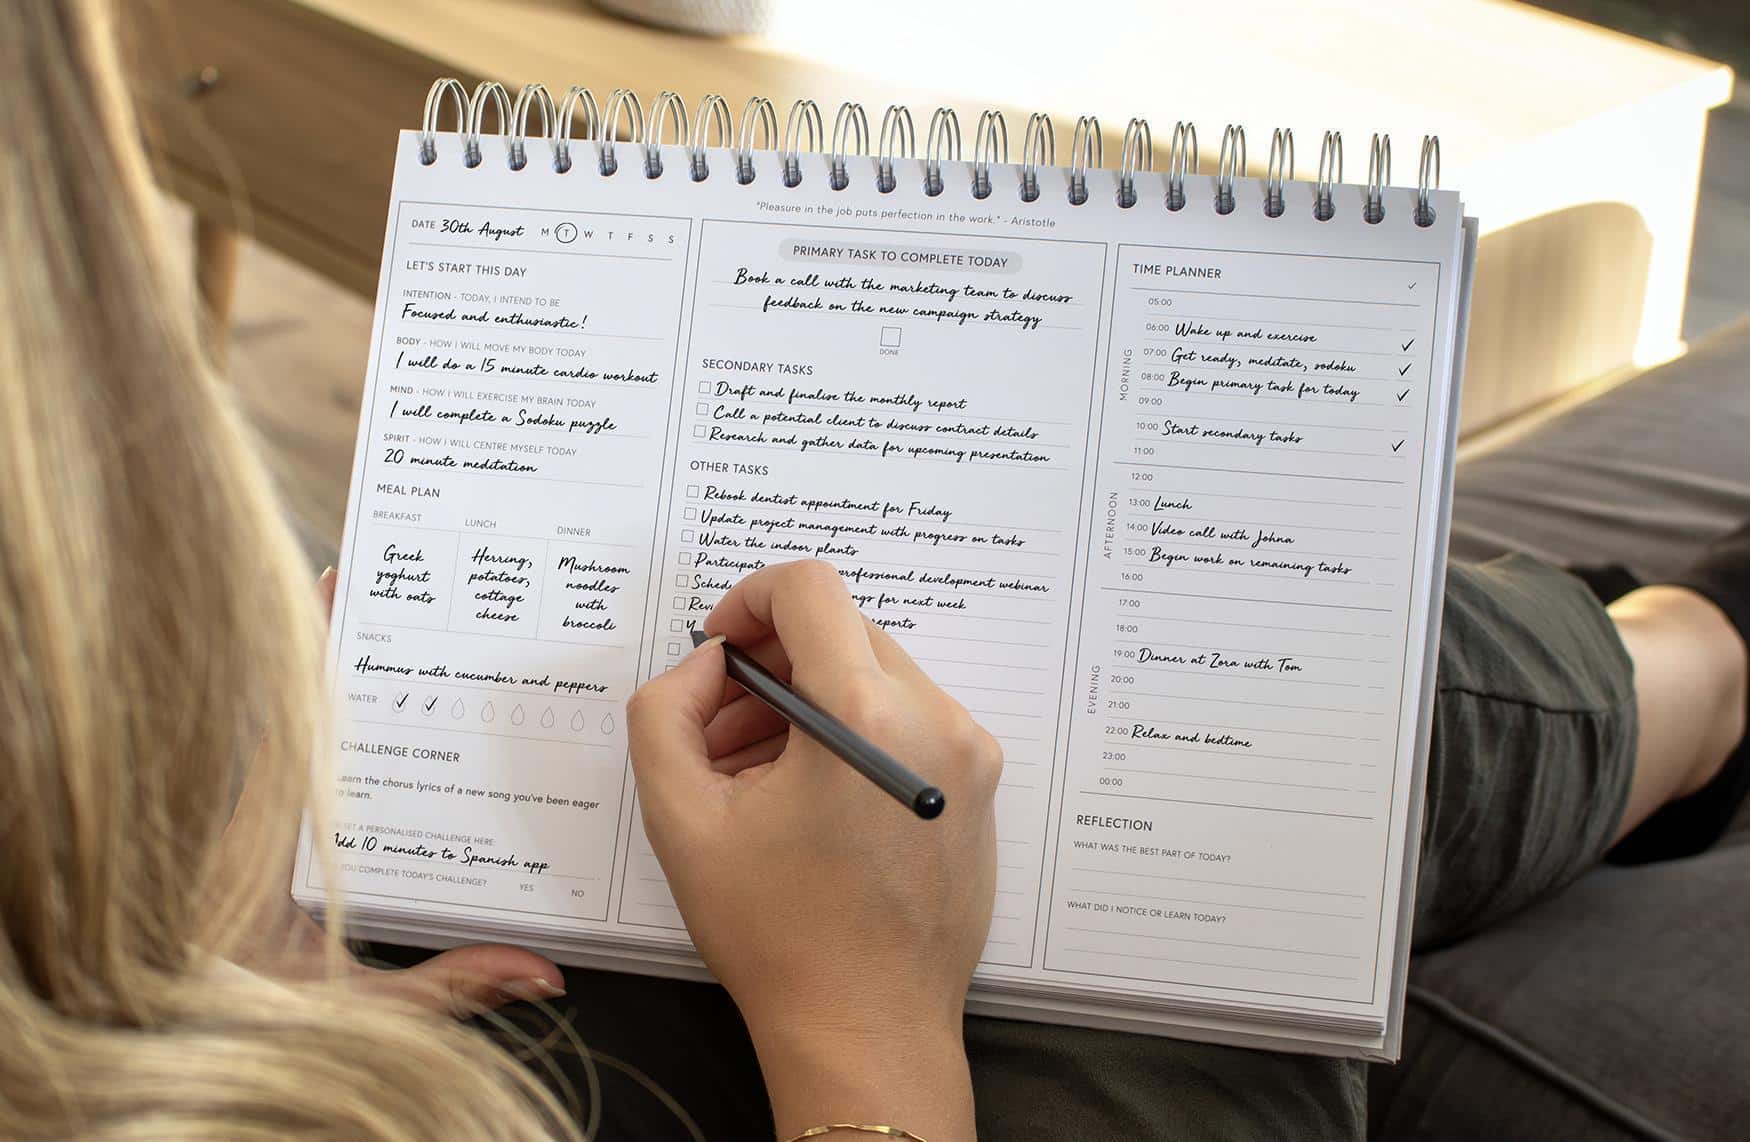 "Pleasure in the job puts perfection in the work." - Aristotle
DATE 30th August M T W T F S S
LET'S START THIS DAY
INTENTION - TODAY, I INTEND TO BE
Focused and enthusiastic!
BODY - HOW I WILL MOVE MY BODY TODAY
I will do a 15 minute cardio workout
MIND - HOW I WILL EXERCISE MY BRAIN TODAY
I will complete a Sodoku puzzle
SPIRIT - HOW I WILL CENTRE MYSELF TODAY
20 minute meditation
MEAL PLAN
BREAKFAST
Greek
yoghurt
with oats
LUNCH
Herring,
potatoes,
cottage
cheese
DINNER
Mushroom
noodles
with
broccoli
SNACKS
Hummus with cucumber and peppers
WATER
CHALLENGE CORNER
earn the chorus lyrics of a new song you've been eager
o learn.
A PERSONALISED CHALLENGE HERE
10 minutes to Spanish app
YOU COMPLETE TODAY'S CHALLENGE? YES NO
PRIMARY TASK TO COMPLETE TODAY
Book a call with the marketing team to discuss
feedback on the new campaign strategy
DONE
SECONDARY TASKS
Draft and finalise the monthly report
Call a potential client to discuss contract details
Research and gather data for upcoming presentation
OTHER TASKS
Rebook dentist appointment for Friday
Update project management with progress on tasks
Water the indoor plants
Participat professional development webinar
Sched ngs for next week
Revi reports
TIME PLANNER
MORNING
05:00
06:00 Wake up and exercise
07:00 Get ready, meditate, sodoku
08:00 Begin primary task for today
09:00
10:00 Start secondary tasks
11:00
AFTERNOON
12:00
13:00 Lunch
14:00 Video call with Johna
15:00 Begin work on remaining tasks
16:00
EVENING
17:00
18:00
19:00 Dinner at Zora with Tom
20:00
21:00
22:00 Relax and bedtime
23:00
00:00
REFLECTION
WHAT WAS THE BEST PART OF TODAY?
WHAT DID I NOTICE OR LEARN TODAY?